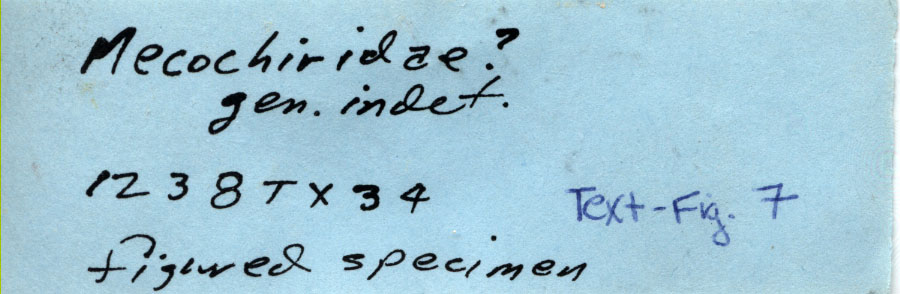 Mecochiridae?
gen. indet.
1238TX34
Text-Fig. 7
figured specimen